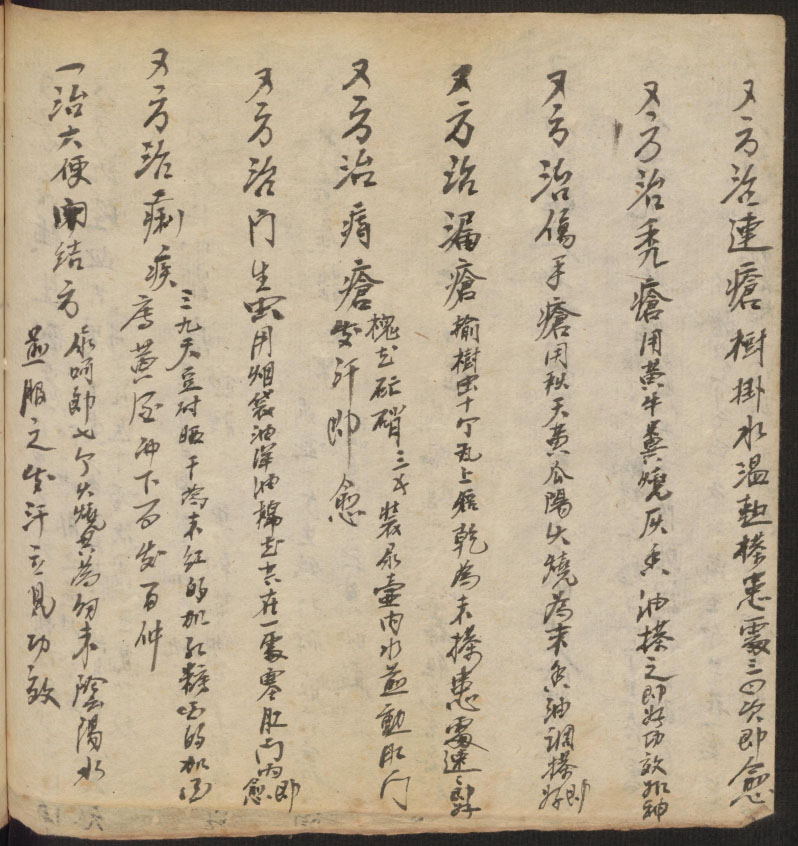 又方治連瘡樹掛水溫熱搽患處三四次即愈
又方治禿瘡用黃牛糞燒灰香油搽之即好功效如神
又方治傷手瘡用秋天黃瓜陽火燒為末香油調搽即好
又方治漏瘡榆樹虫十个瓦上焙乾為末搽患處速速即好
又方治痔瘡槐子硭硝三錢裝尿壺內水煎動肛門
發汗即愈
又方治門生虫用烟袋油洋油棉花在一處塞肛門內即愈
又方治痢疾三九天豆付晒干為末紅的加紅糖白的加白
唐黃酒冲下百發百仲
一治大便閉結方 七个火燒共為勿末陰陽水
煎服之發汗立見功效